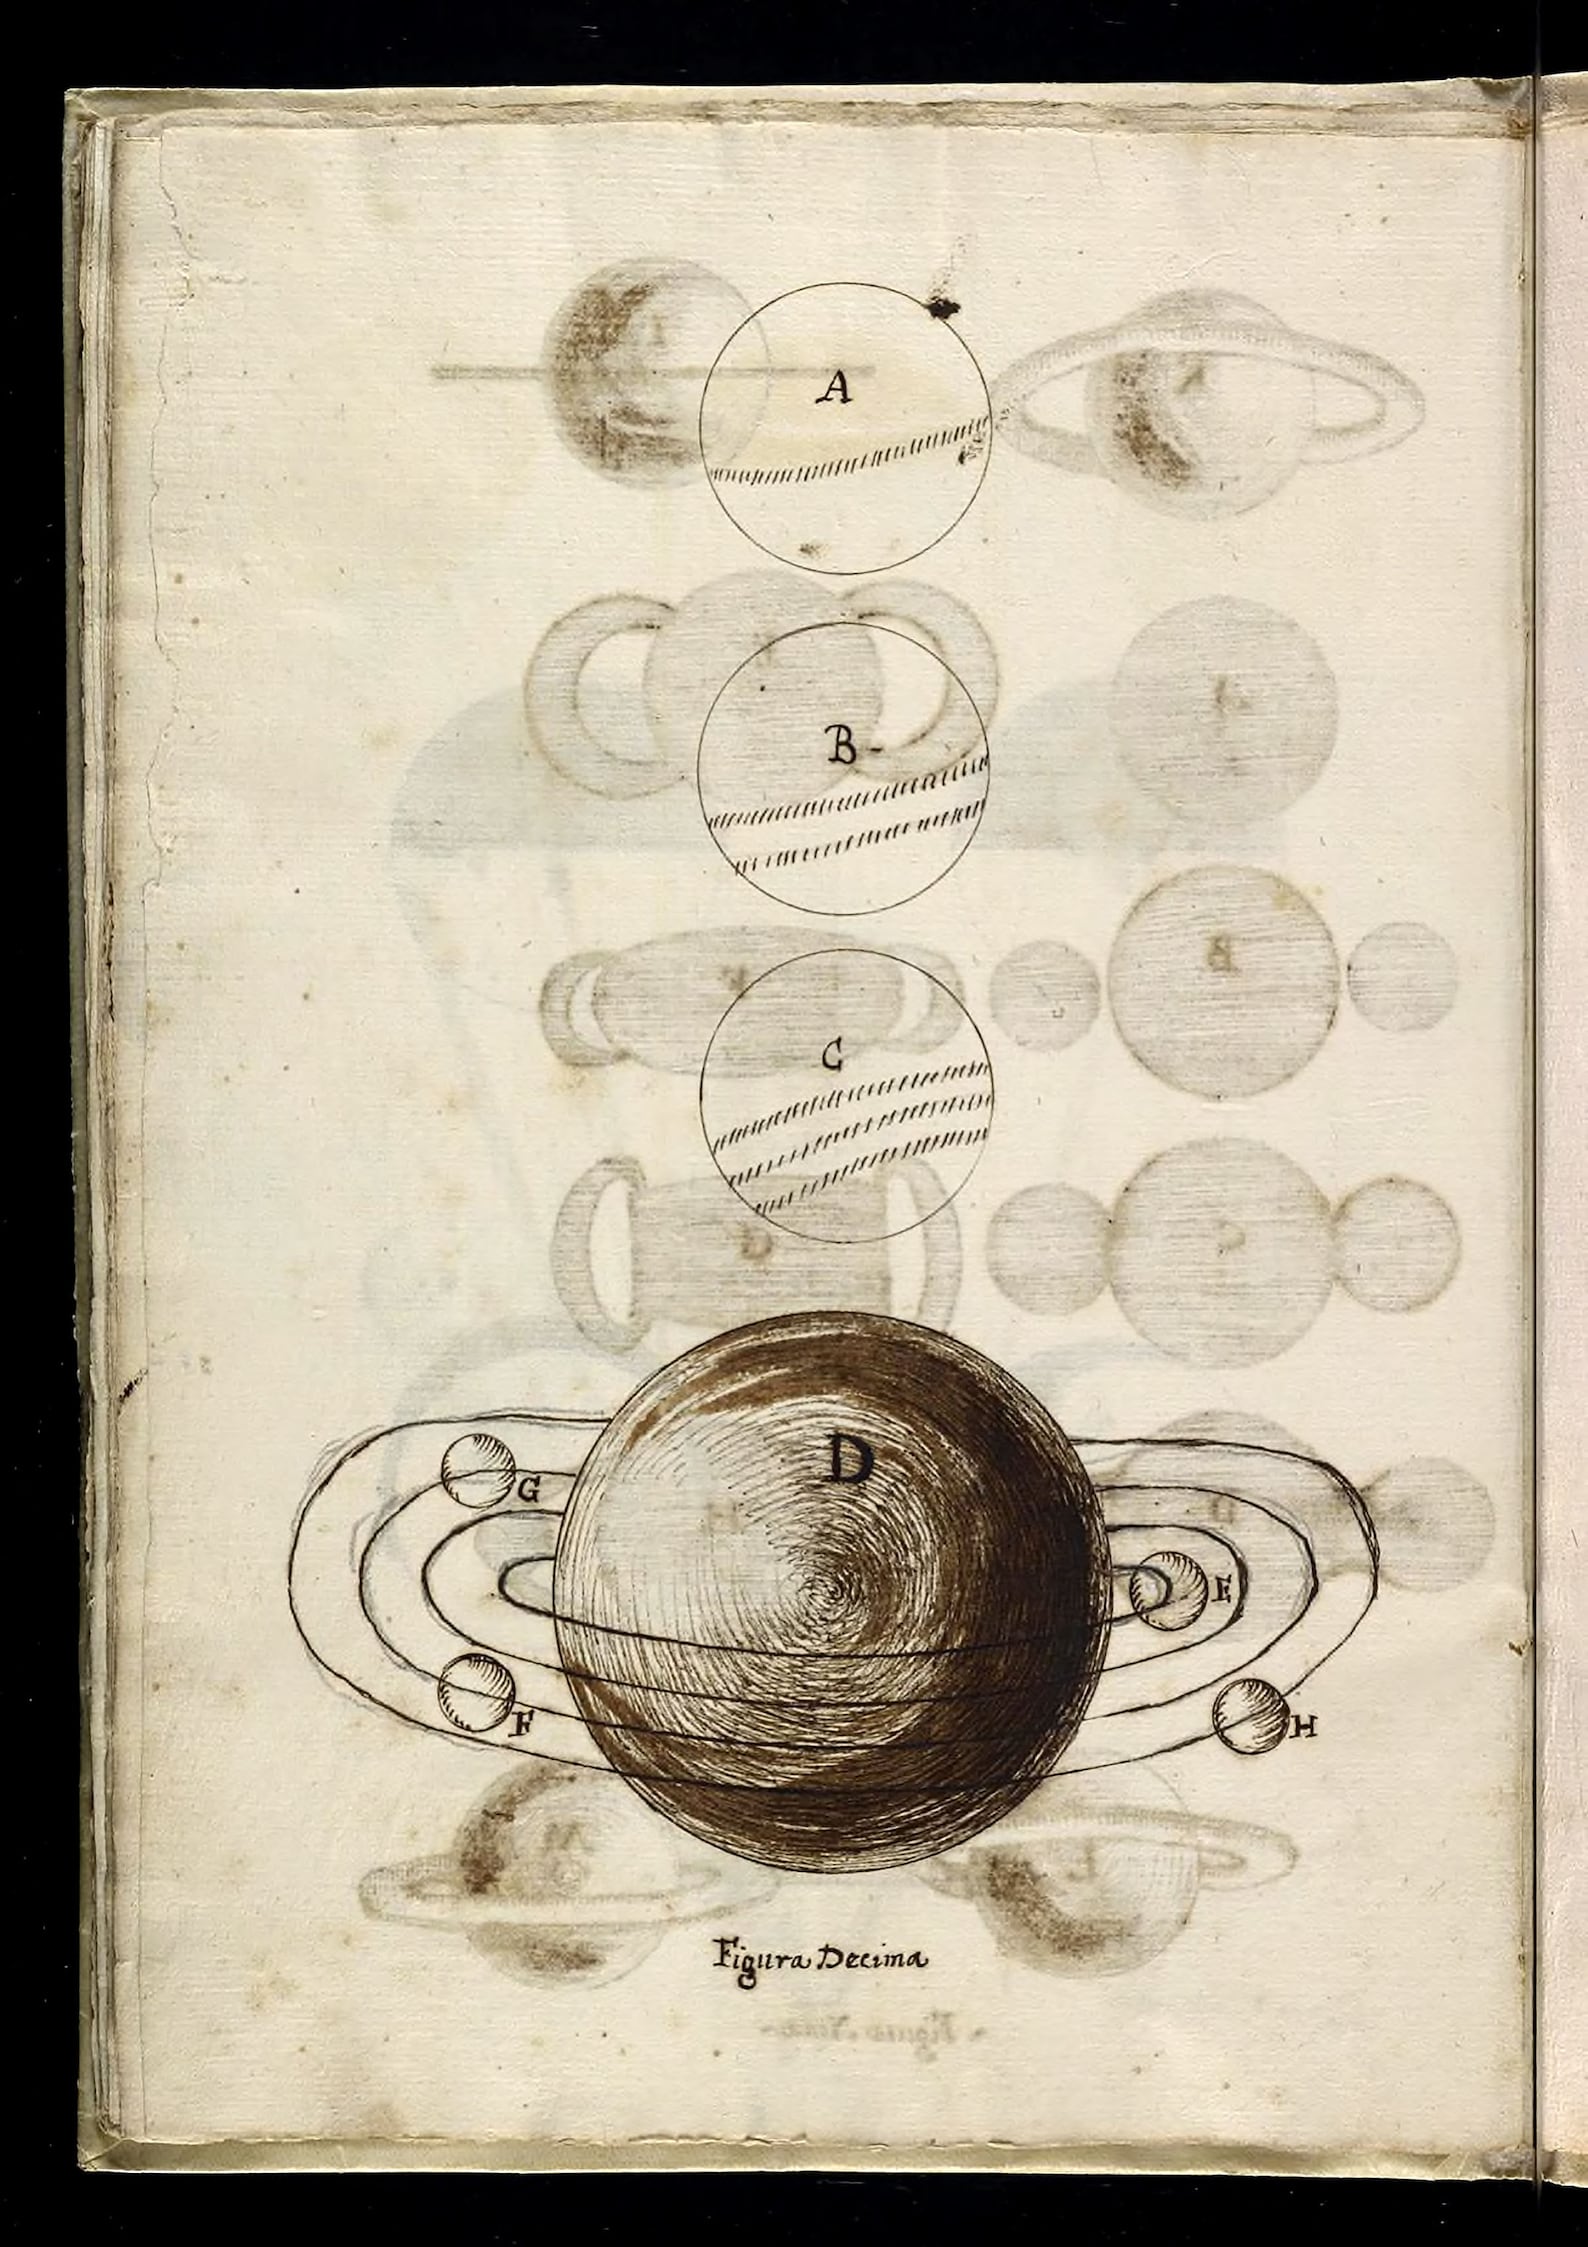 A
B-
C
D
G
E
F
H
Figura Decima